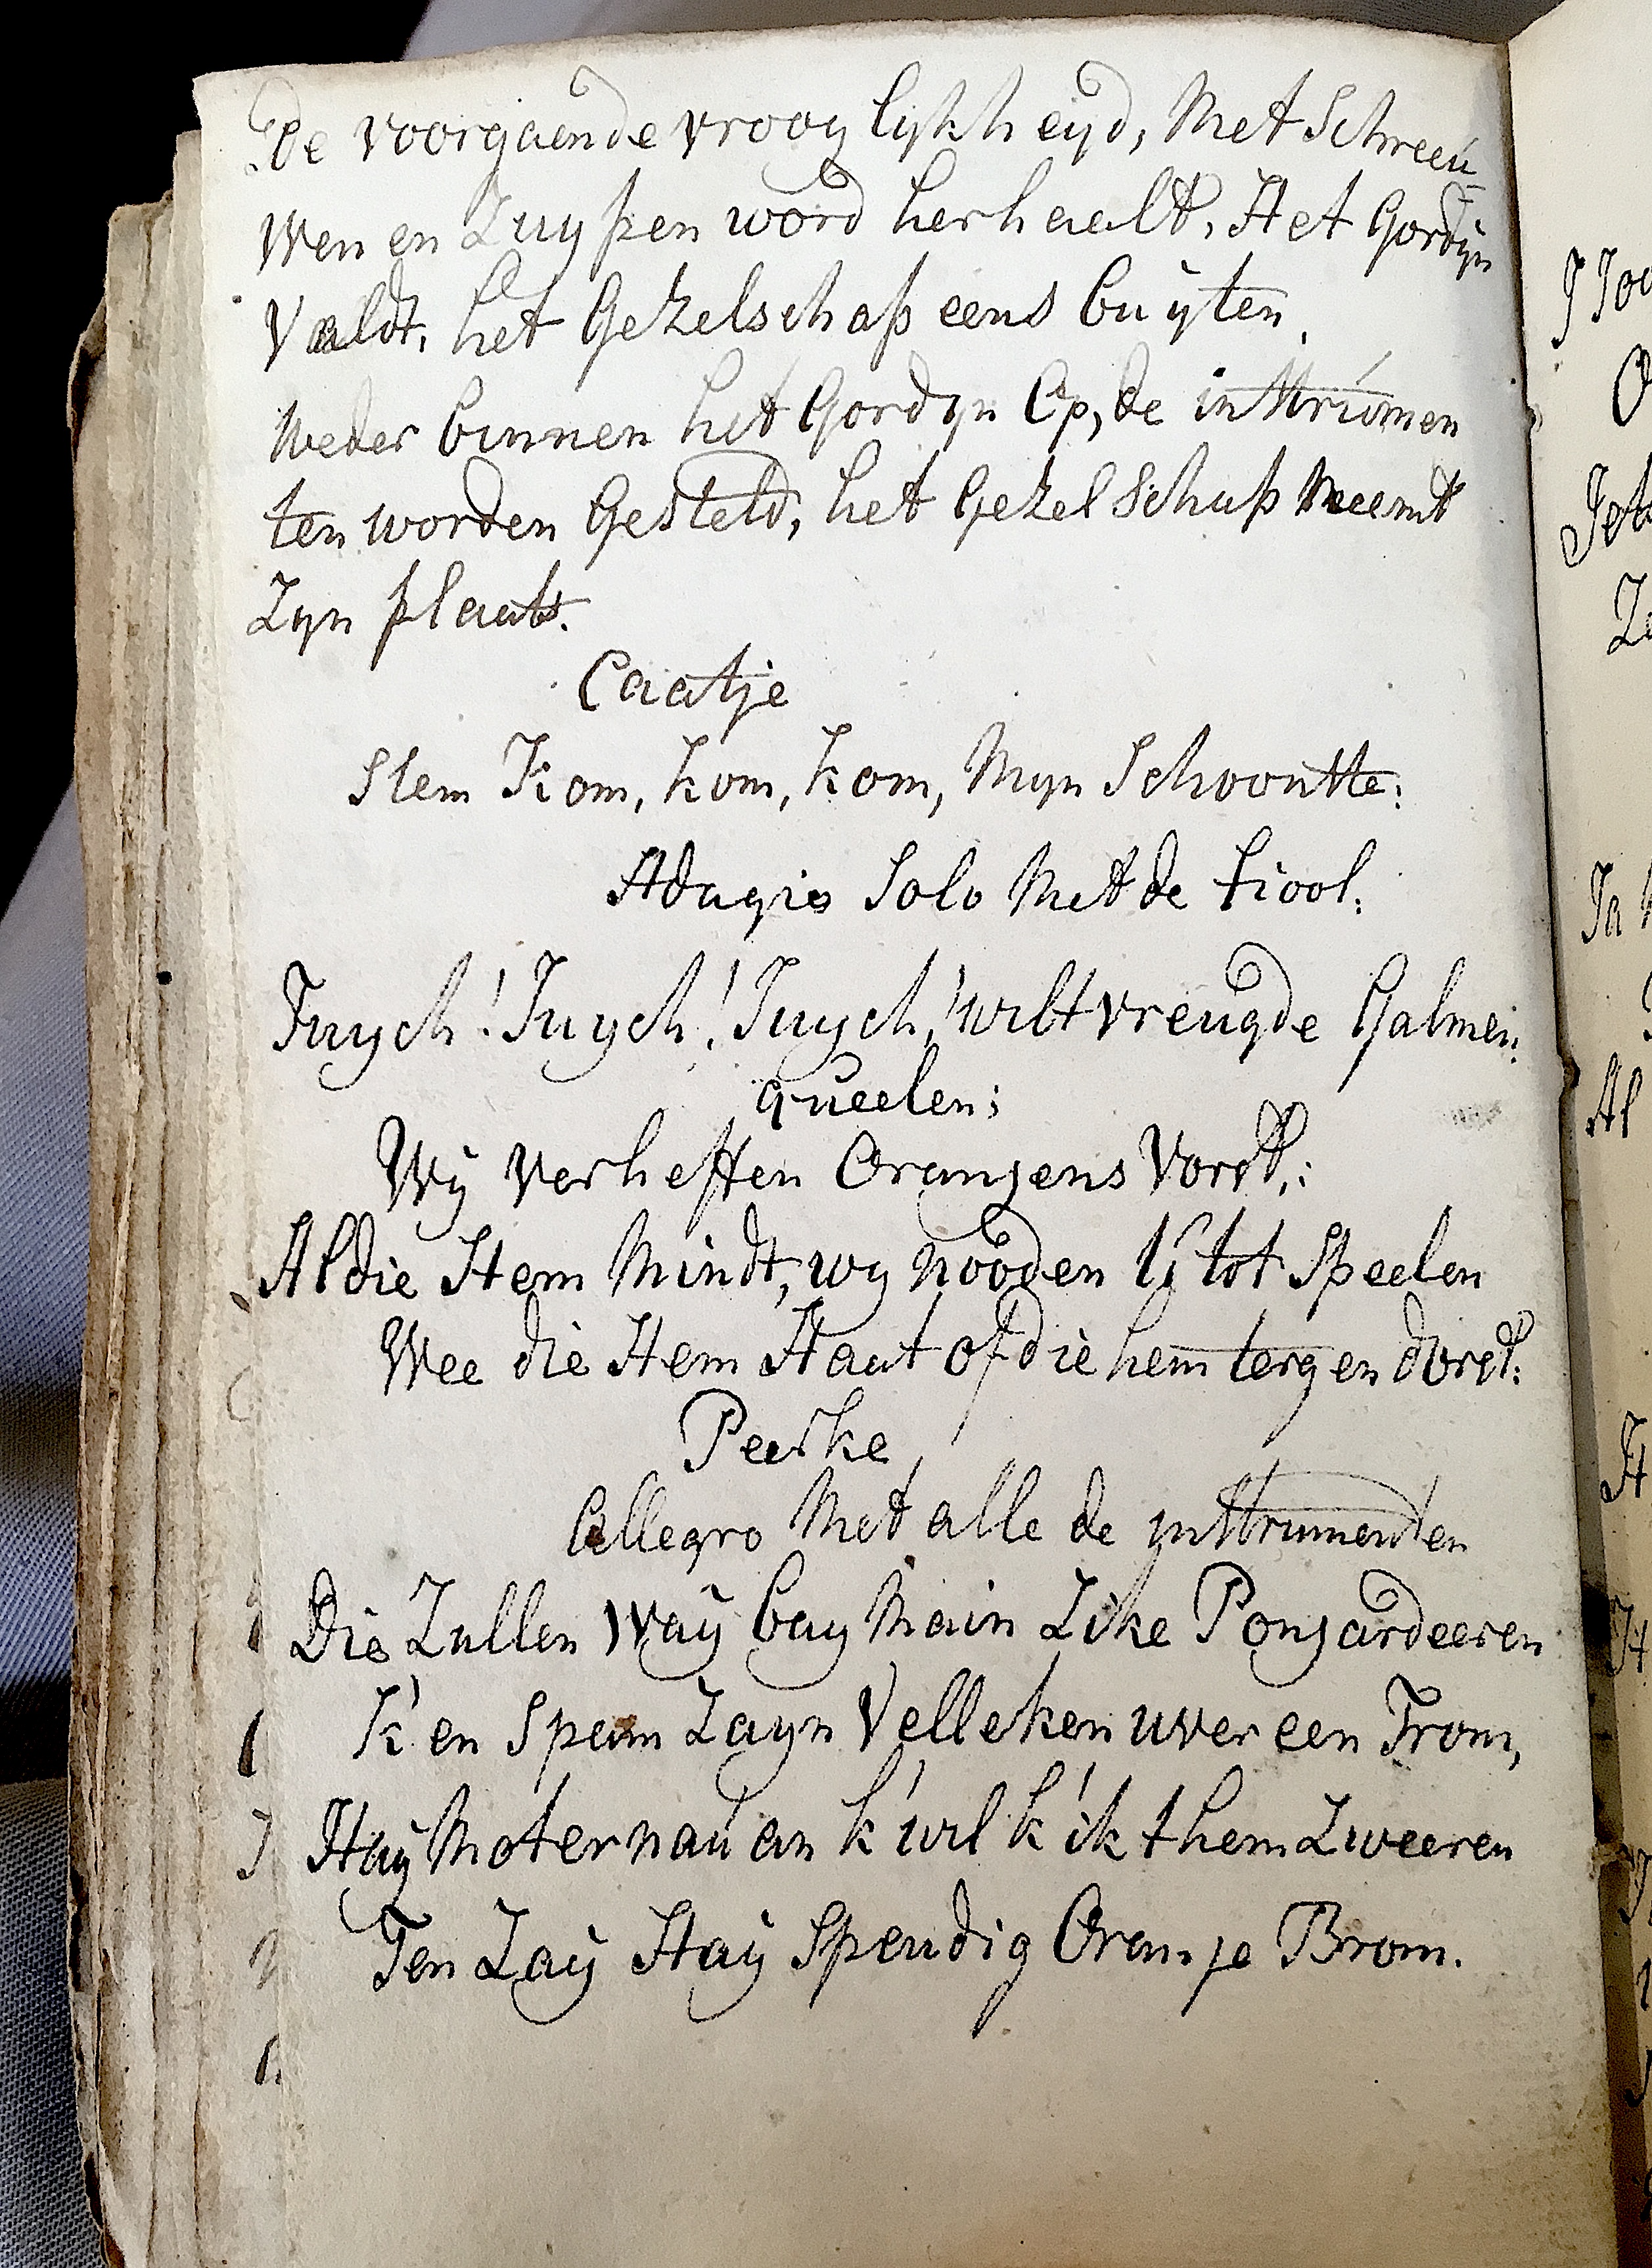 De voorgaende vroog lykheyd, Met Schreeu
wen en Zuypen word herhaeldt, Het Gordyn
Valdt, het Gezelschap eens buyten.
Weder binnen het Gordyn Op, de instrumen
ten worden Gesteld, het Gezelschap Neemt
Zyn plaats.
Caatje
Stem Kom, kom, kom, Myn Schoonste:
Adagio Solo Met de fiool:
Juych! Juych! Juych! wilt vreugde Galmen:
queelen;
Wy verheffen Oranjens Vorst,:
Al die Hem Mindt, wy nooden U tot Speelen
Wee die Hem Haat of die hem tergen dorst:
Peerke
Allegro Met alle de ynstrumenten
Die Zullen Way bay Main Zike Ponjardeeren
K'en Span Zayn Velleken uver een Trom,
Hay Moter nau an k'wil k'ik t hem Zweeren
Ten Zay Hay Spendig Oranje Brom.